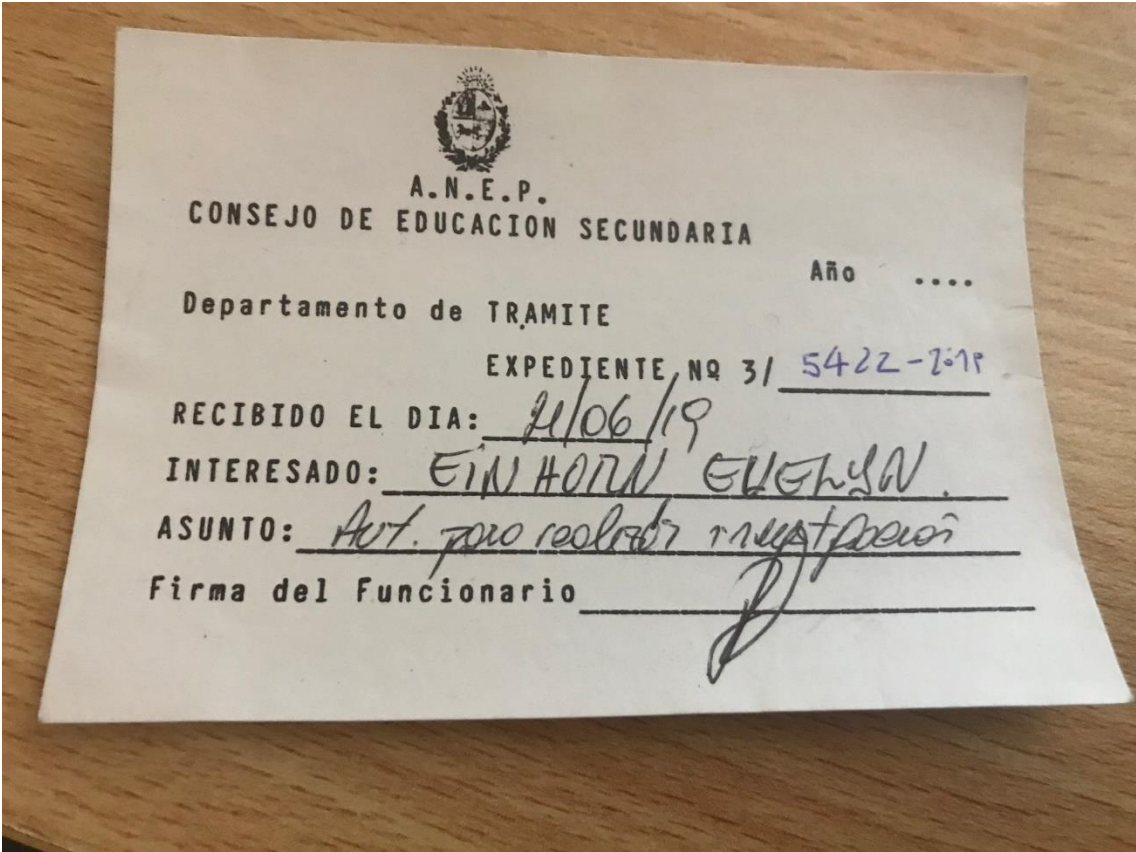 A.N.E.P.
CONSEJO DE EDUCACION SECUNDARIA
Año ....
Departamento de TRAMITE
EXPEDIENTE Nº 3/ 5422-2019
RECIBIDO EL DIA: 21/06/19
INTERESADO: EINHORN EVELYN.
ASUNTO: Aut. para realizar investigación
Firma del Funcionario